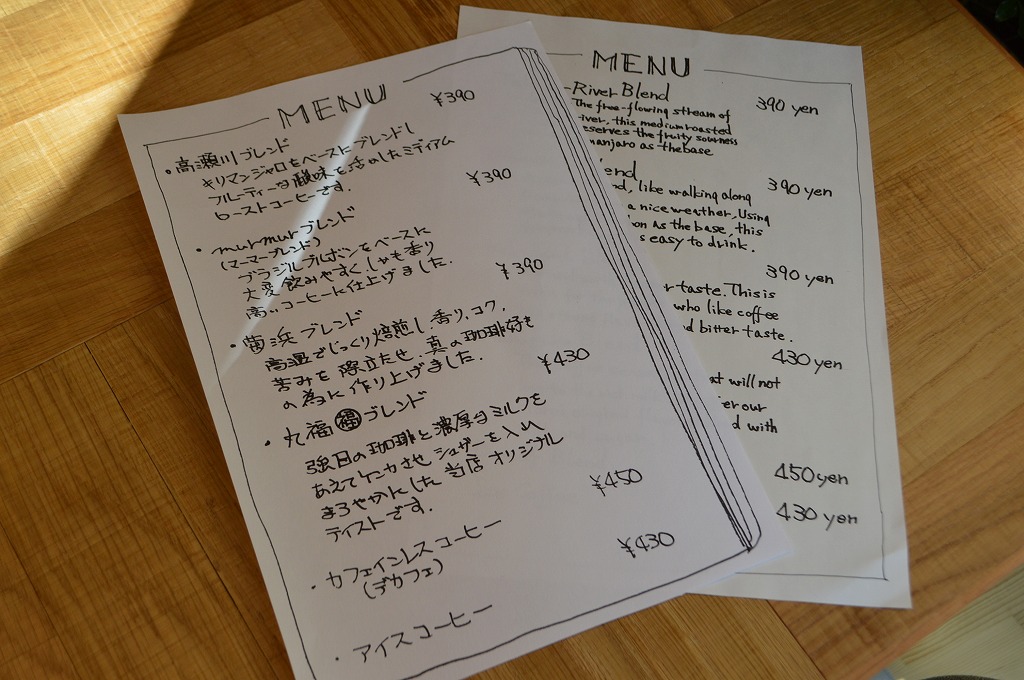 MENU
・高瀬川ブレンド ¥390
キリマンジャロをベースにブレンドし
フルーティーな酸味を活のしたミディアム
ローストコーヒーです.
・murmurブレンド ¥390
(マーマーブレンド)
ブラジルブルボンをベースに
大変飲みやすく.しかも香り
高いコーヒーに仕上げました.
・菌浜ブレンド ¥390
高温でじっくり焙煎し.香り.コク.
苦みを際立たせ.真の珈琲好き
の為に作り上げました.
・丸福 福 ブレンド ¥430
強目の珈琲と濃厚なミルクを
あえて シュガーを入れ
まろやかにした当店オリジナル
テイストです.
・カフェインレスコーヒー ¥450
(デカフェ)
・アイスコーヒー ¥430
MENU
-River Blend 390 yen
The free-flowing stream of
river, this medium roasted
eserves the fruity sourness
manjaro as the base
lend 390 yen
nd, like walking along
a nice weather, Using
bon as the base, this
s easy to drink.
390 yen
r taste. This is
who like coffee
d bitter taste.
430 yen
at will not
ter our
d with
450 yen
430 yen